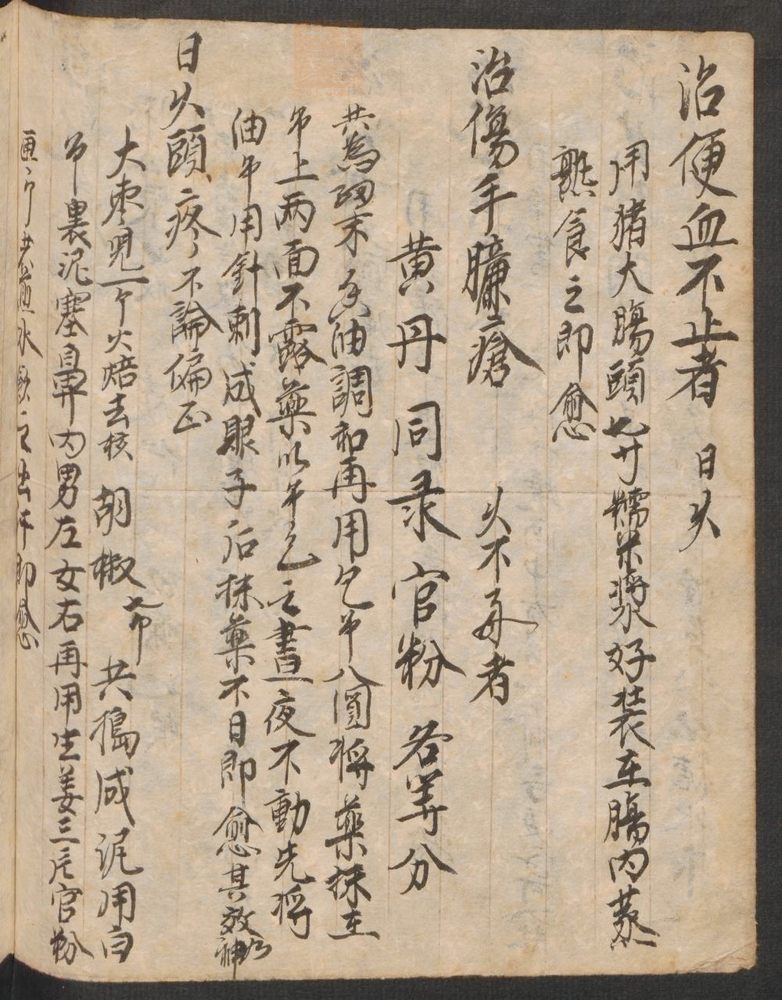 治便血不止者 日久
用猪大腸頭七寸糯米漿好装在腸内蒸
熟食之即愈
治傷手臁瘡 久不者
黄丹 同录 官粉 各等分
共為細末油調和再用帋八圓將藥抹在
帋上两面不露藥以之晝夜不動先將
油帋用針刺成眼子后抹藥不日即愈其效神
日久頭疼不論偏正
大枣兒一个火焙去核 胡椒 共搗成泥用白
帋裹泥塞鼻内男左女右再用生姜三片官粉
水飲之出汗即愈